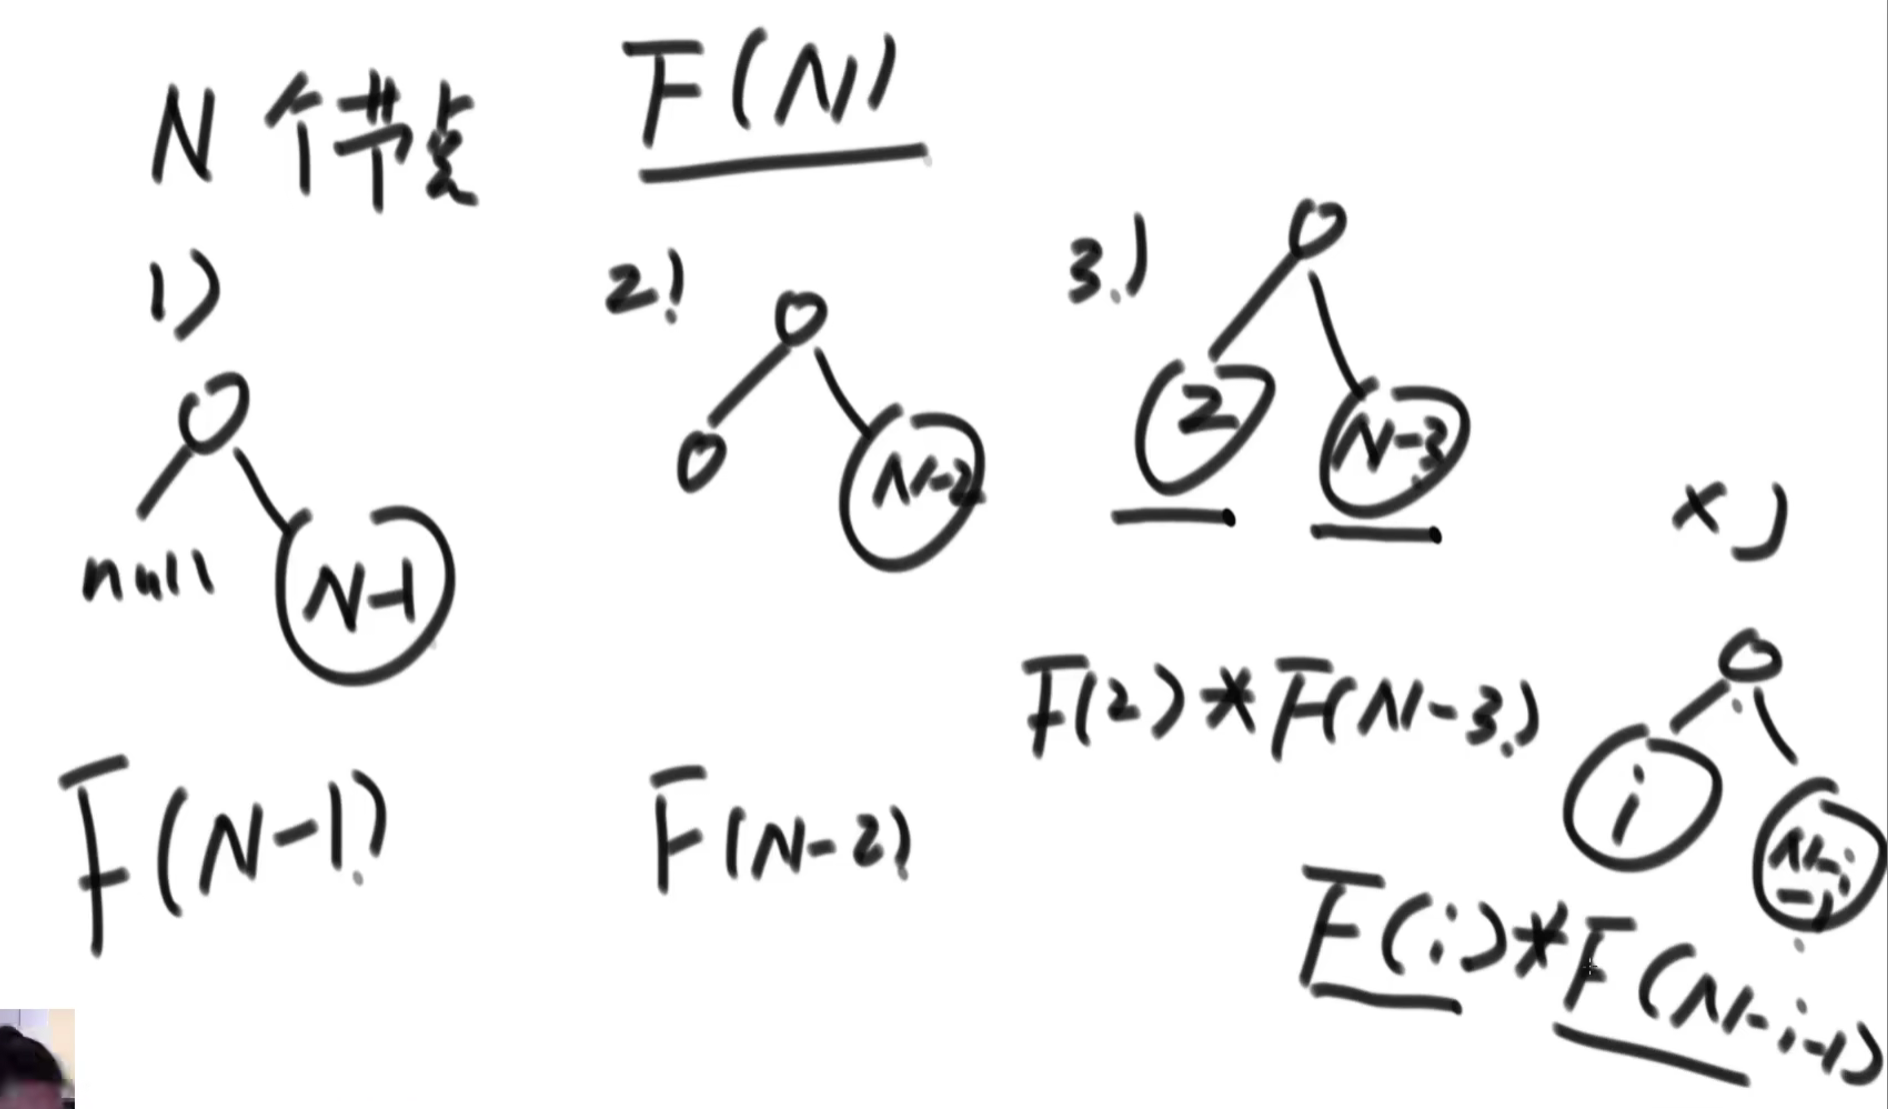 N个节点 F(N)
1)
null
N-1
F(N-1)
2)
N-2
F(N-2)
3)
2
N-3
F(2)*F(N-3)
x)
i
N-i
-1
F(i)*F(N-i-1)